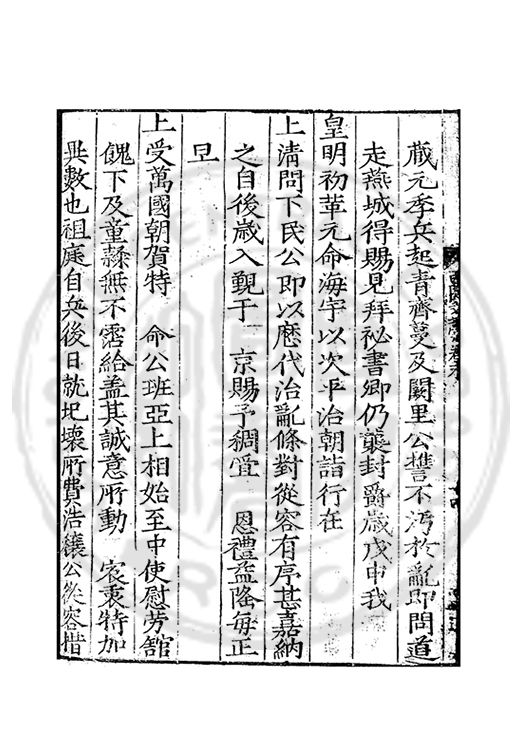 藏元季兵起青齊蔓及闕里公誓不汚於亂即間道
走燕城得賜見拜祕書卿仍襲封爵歳戊申我
皇明初革元命海宇以次平治朝詣行在
上清問下民公即以歷代治亂條對從容有序甚嘉納
之自後歲入覲于 京賜予稠疊 恩禮益隆每正
旦
上受萬國朝賀特 命公班亞上相始至中使慰劳館
餽下及童隸無不霑給盖其誠意所動 宸衷特加
異數也祖庭自兵後日就圮壞所費浩穰公從容措